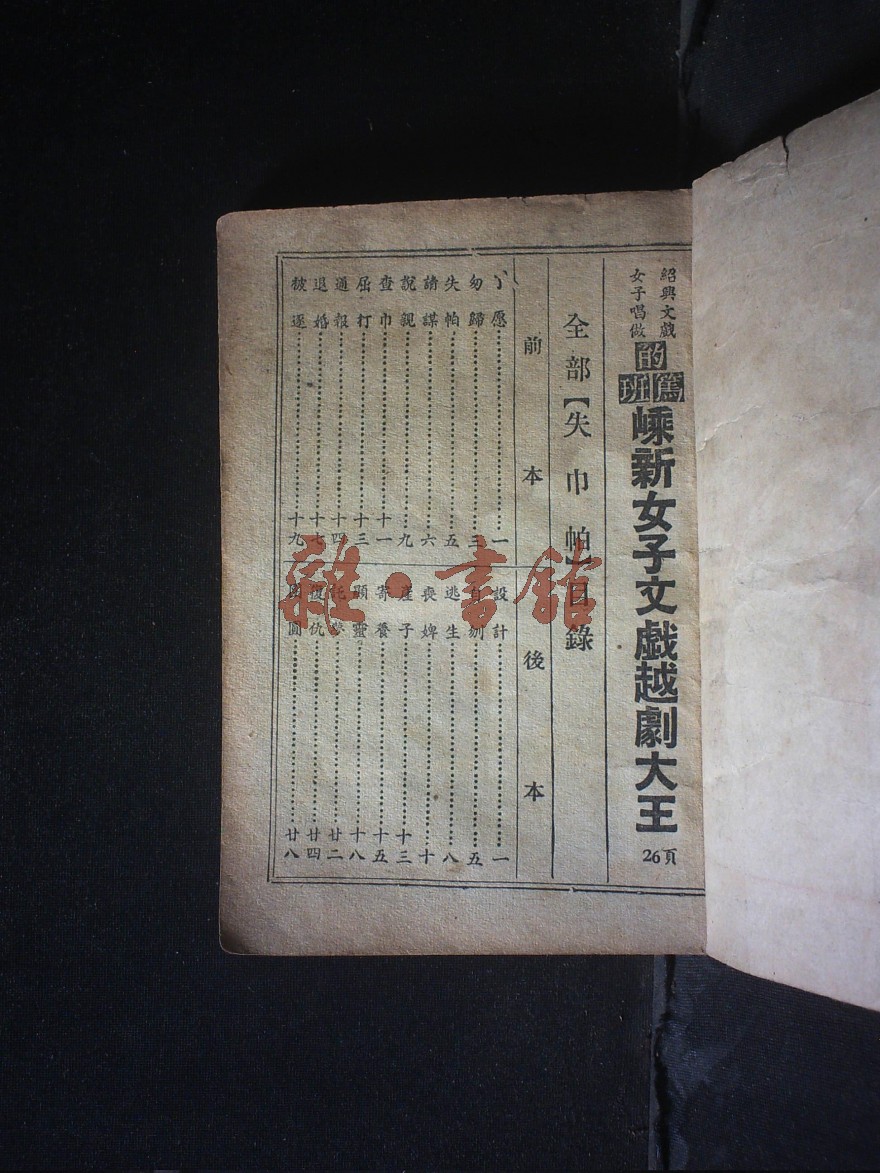 紹興文戲
女子唱做
的篤班
嵊新女子文戲越劇大王
26頁
全部【失巾帕】目錄
前本
愿………一
匆歸………三
失帕………五
請謀………六
說親………九
查巾………十一
屈打………十三
通報………十四
退婚………十七
被逐………十九
後本
設計………一
自刎………五
逃生………八
喪婢………十
產子………十三
寄養………十五
顯靈………十八
托夢………廿二
復仇………廿四
團圓………廿八
雜·書館